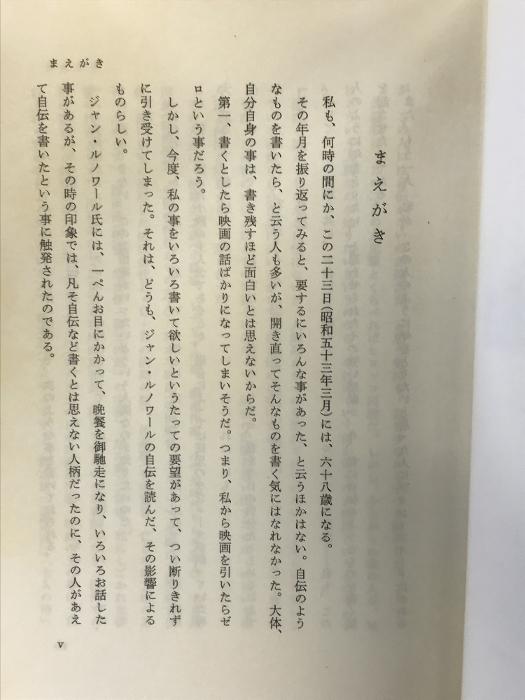 まえがき
まえがき
私も、何時の間にか、この二十三日(昭和五十三年三月)には、六十八歳になる。
その年月を振り返ってみると、要するにいろんな事があった、と云うほかはない。自伝のよう
なものを書いたら、と云う人も多いが、開き直ってそんなものを書く気にはなれなかった。大体、
自分自身の事は、書き残すほど面白いとは思えないからだ。
第一、書くとしたら映画の話ばかりになってしまいそうだ。つまり、私から映画を引いたらゼ
ロという事だろう。
しかし、今度、私の事をいろいろ書いて欲しいというたっての要望があって、つい断りきれず
に引き受けてしまった。それは、どうも、ジャン・ルノワールの自伝を読んだ、その影響による
ものらしい。
ジャン・ルノワール氏には、一ぺんお目にかかって、晩餐を御馳走になり、いろいろお話した
事があるが、その時の印象では、凡そ自伝など書くとは思えない人柄だったのに、その人があえ
て自伝を書いたという事に触発されたのである。
v